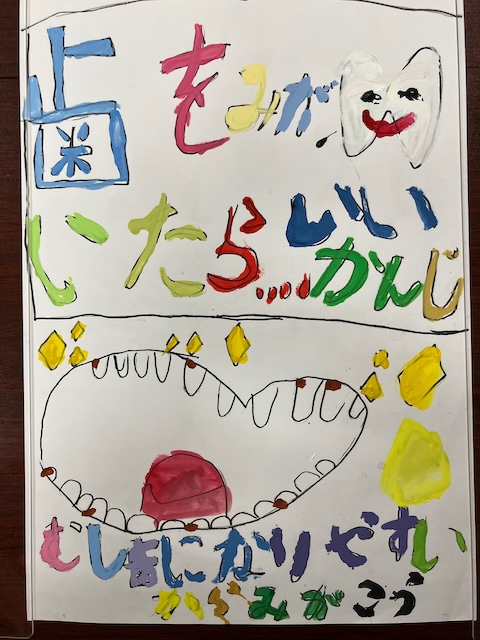 歯をみが
いたら....いい
かんじ
むし歯になりやすい
からみがこう